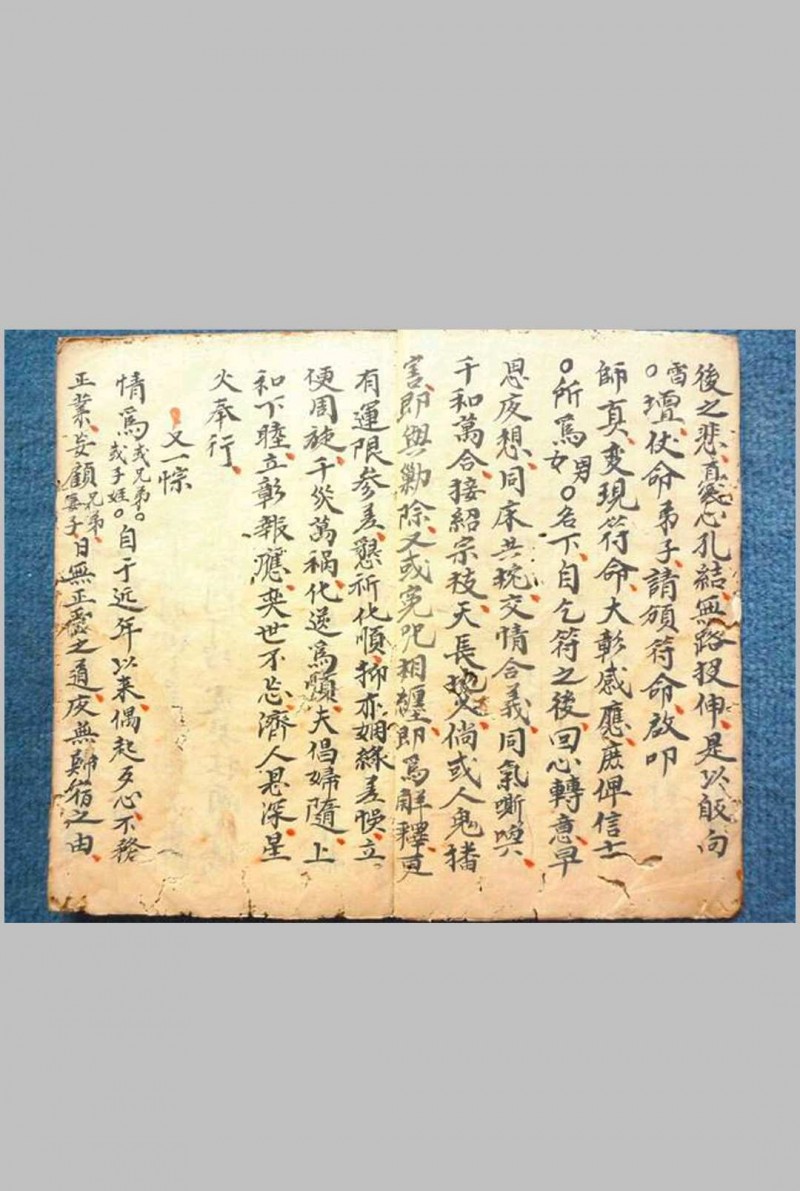 後之悲、哀心孔結、無路投伸、是以皈向
雷○壇、仗命弟子、請頒符命、啟叩
師真、变現符命、大彰感應、庶俾信士
○所爲男女○名下、自乞符之後、回心轉意、早
思夜想、同床共枕、交情合義、同氣嘶嘆、
千和萬合、接紹宗枝、天長地久、倘或人鬼播
害、即與勦除、又或冤咒相纏、即爲解釋、更
有運限参差、懇祈化順、抑亦姻緣差悮、立。
便周旋、千災萬禍、化逆爲順、夫倡婦隨、上
和下睦、立彰報應、奕世不忘、濟人恩深、星
火奉行、
又一悰
情爲或兄弟。或子姪。自于近年以来、偶起歹心、不務
正業、妄顧兄弟、妻子、日無正之道、夜無歸宿之由、